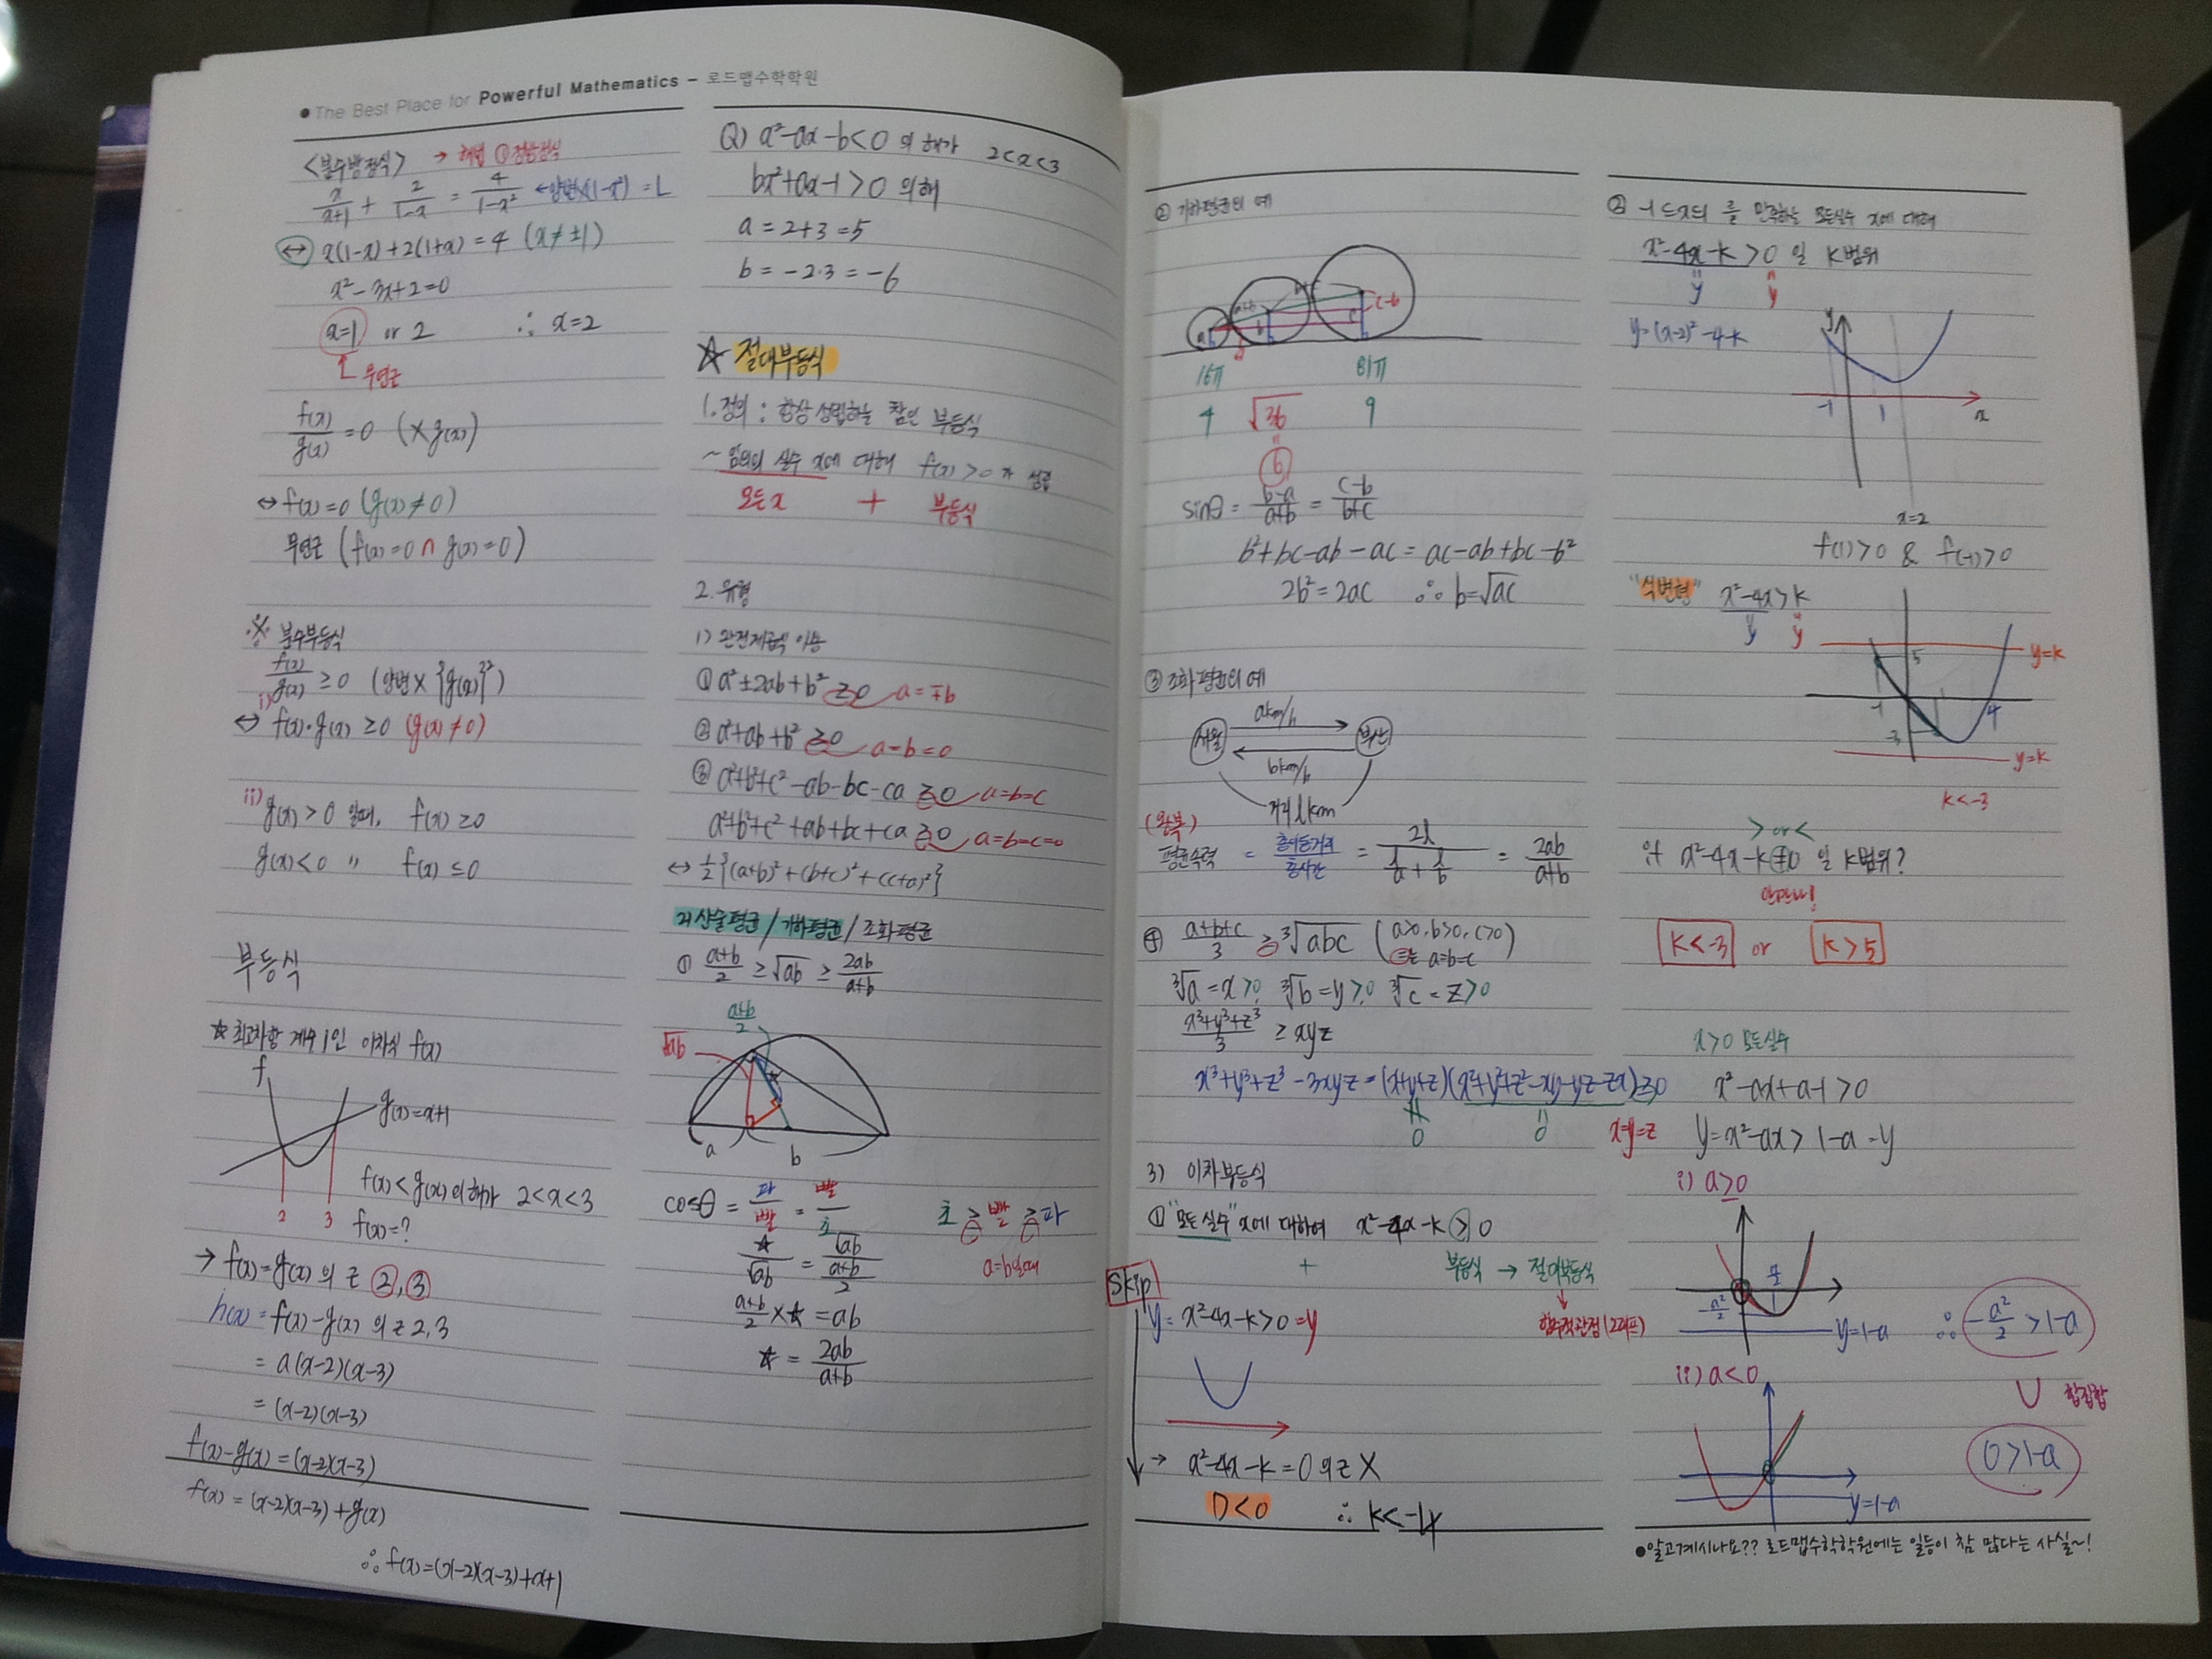 ●The Best Place for Powerful Mathematics - 로드맵수학학원
<분수방정식> → 해법 ① 정방정식
x/(x+1) + 2/(1-x) = 4/(1-x²) ← 양변×(1-x²) = L
↔ x(1-x)+2(1+x)=4 (x≠±1)
x²-3x+2=0
x=1 or 2 ∴ x=2
무연근
f(x)/g(x)=0 (×g(x))
↔ f(x)=0 (g(x)≠0)
무연근 (f(x)=0 ∩ g(x)=0)
※ 분수부등식
f(x)/g(x) ≥0 (양변×{g(x)}²)
i)
↔ f(x)·g(x) ≥0 (g(x)≠0)
ii) g(x)>0 일때, f(x)≥0
g(x)<0 〃 f(x)≤0
부등식
☆최고차항 계수 1인 이차식 f(x)
f
g(x)=x+1
2 3
f(x)<g(x)의 해가 2<x<3
f(x)=?
→ f(x)=g(x)의 z ②,③
h(x)=f(x)-g(x)의 z 2,3
=a(x-2)(x-3)
=(x-2)(x-3)
f(x)-g(x)=(x-2)(x-3)
f(x)=(x-2)(x-3)+g(x)
∴ f(x)=(x-2)(x-3)+x+1
Q) x²-ax-b<0의 해가 2<x<3
bx²+ax-1>0의 해
a=2+3=5
b=-2·3=-6
☆ 절대부등식
1.정의 : 항상 성립하는 참인 부등식
~ 임의의 실수 x에 대해 f(x)>0가 성립
모든 x + 부등식
2.유형
i) 완전제곱식 이용
① a²±2ab+b² ≥0 a=∓b
② a²+ab+b² ≥0 a=b=0
③ a²+b²+c²-ab-bc-ca ≥0 a=b=c
a²+b²+c²+ab+bc+ca ≥0 a=b=c=0
↔ ½{(a+b)²+(b+c)²+(c+a)²}
2) 산술평균/기하평균/조화평균
① (a+b)/2 ≥ √ab ≥ 2ab/(a+b)
(a+b)/2
√ab
☆
a b
cosθ = 파/빨 = 빨/초 초≥빨≥파
☆/√ab = √ab/((a+b)/2) a=b일때
(a+b)/2 ×☆ =ab
☆ = 2ab/(a+b)
② 기하평균의 예
a a+b b b+c c c-b
16π 81π
4 √36 9
=
6
sinθ = (b-a)/(a+b) = (c-b)/(b+c)
b²+bc-ab-ac=ac-ab+bc-b²
2b²=2ac ∴ b=√ac
③ 조화평균의 예
akm/h
서울 부산
bkm/h
거리 lkm
(왕복)
평균속력 = 총이동거리/총시간 = 2l/(l/a + l/b) = 2ab/(a+b)
④ (a+b+c)/3 ≥ ³√abc (a>0, b>0, c>0)
=는 a=b=c
³√a=x>0, ³√b=y>0, ³√c=z>0
(x³+y³+z³)/3 ≥ xyz
x³+y³+z³-3xyz=(x+y+z)(x²+y²+z²-xy-yz-zx)≥0
0 0 x=y=z
3) 이차부등식
① "모든 실수" x에 대하여 x²-4x-k>0
+ 부등식 → 절대부등식
Skip
y=x²-4x-k>0=y
함수적관점(그래프)
→ x²-4x-k=0의 z X
D<0 ∴ k<-4
② -1≤x≤1를 만족하는 모든실수 x에 대해
x²-4x-k>0 일 k범위
y y
y=(x-2)²-4-k
y
-1 1 x
x=2
f(1)>0 & f(-1)>0
"식변형" x²-4x>k
y y
5 y=k
-1 4
-3
y=k
k<-3
> or <
if x²-4x-k≠0 일 k범위?
안만나!
k<-3 or k>5
x>0 모든실수
x²-ax+a-1>0
y=x²-ax>1-a=y
i) a≥0
y=1-a ∴ -a²/2 >1-a
ii) a<0 ∪ 합집합
0>1-a
y=1-a
●알고계시나요?? 로드맵수학학원에는 일등이 참 많다는 사실~!